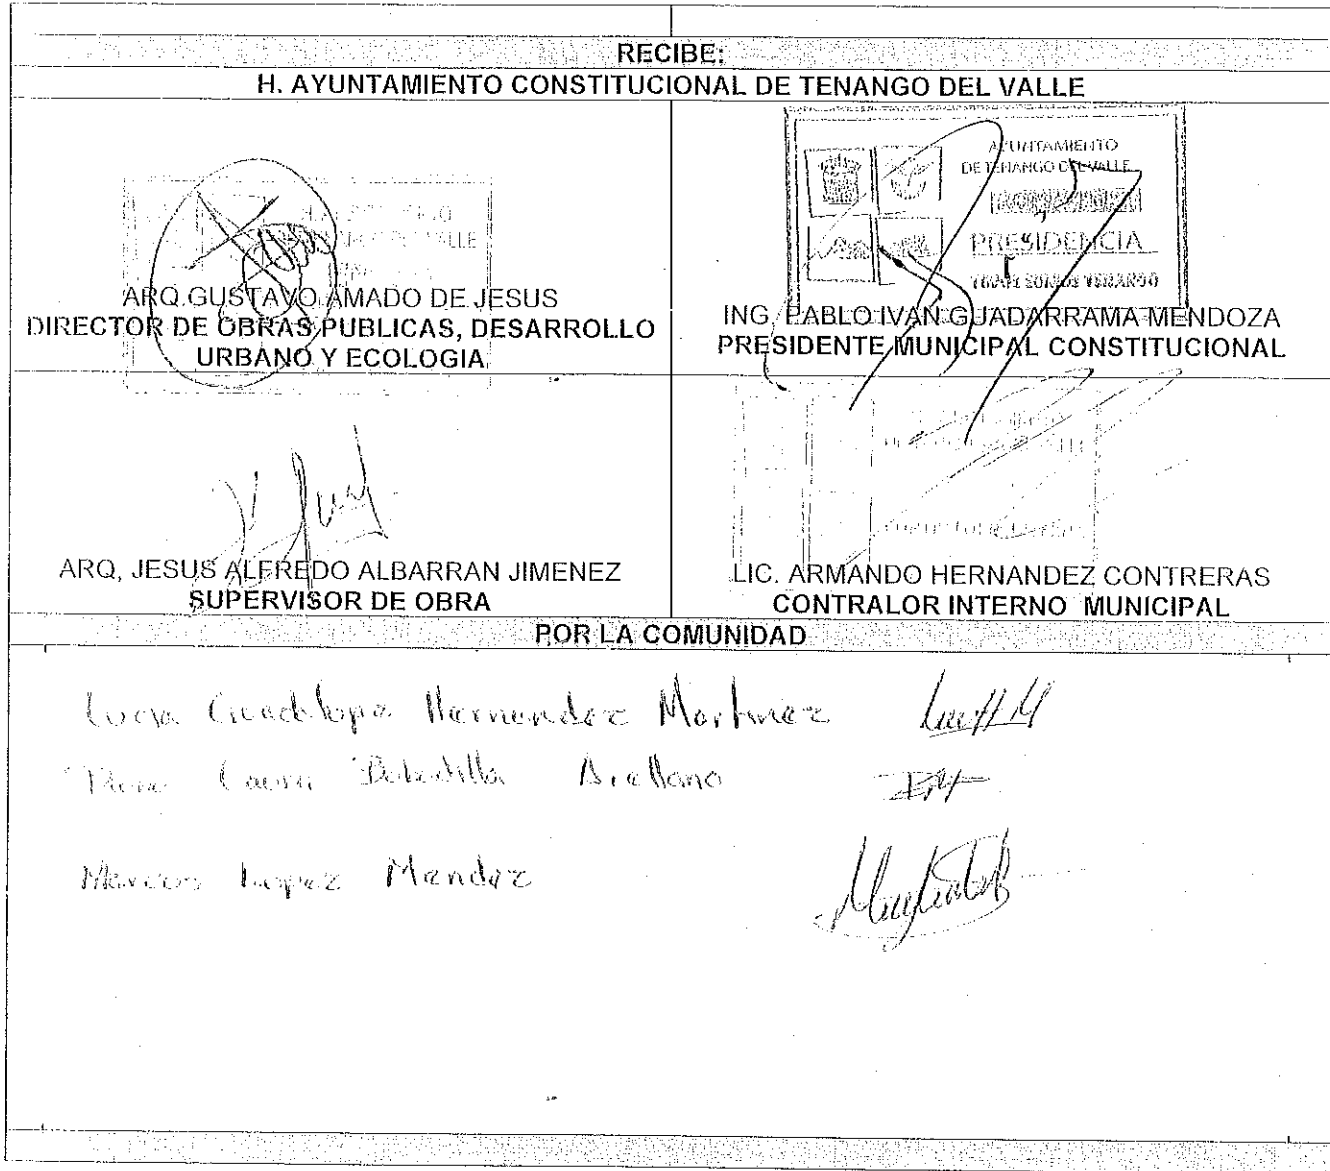 RECIBE:
H. AYUNTAMIENTO CONSTITUCIONAL DE TENANGO DEL VALLE
DEL VALLE
ARQ.GUSTAVO AMADO DE JESUS
DIRECTOR DE OBRAS PUBLICAS, DESARROLLO
URBANO Y ECOLOGIA
AYUNTAMIENTO
DE TENANGO DEL VALLE
PRESIDENCIA
TODOS SOMOS TENANGO
ING. PABLO IVAN GUADARRAMA MENDOZA
PRESIDENTE MUNICIPAL CONSTITUCIONAL
ARQ, JESUS ALFREDO ALBARRAN JIMENEZ
SUPERVISOR DE OBRA
LIC. ARMANDO HERNANDEZ CONTRERAS
CONTRALOR INTERNO MUNICIPAL
POR LA COMUNIDAD
Lucia Guadalupe Hernandez Martinez
Laura Bobadilla Arellano
Marcos Lopez Mendez